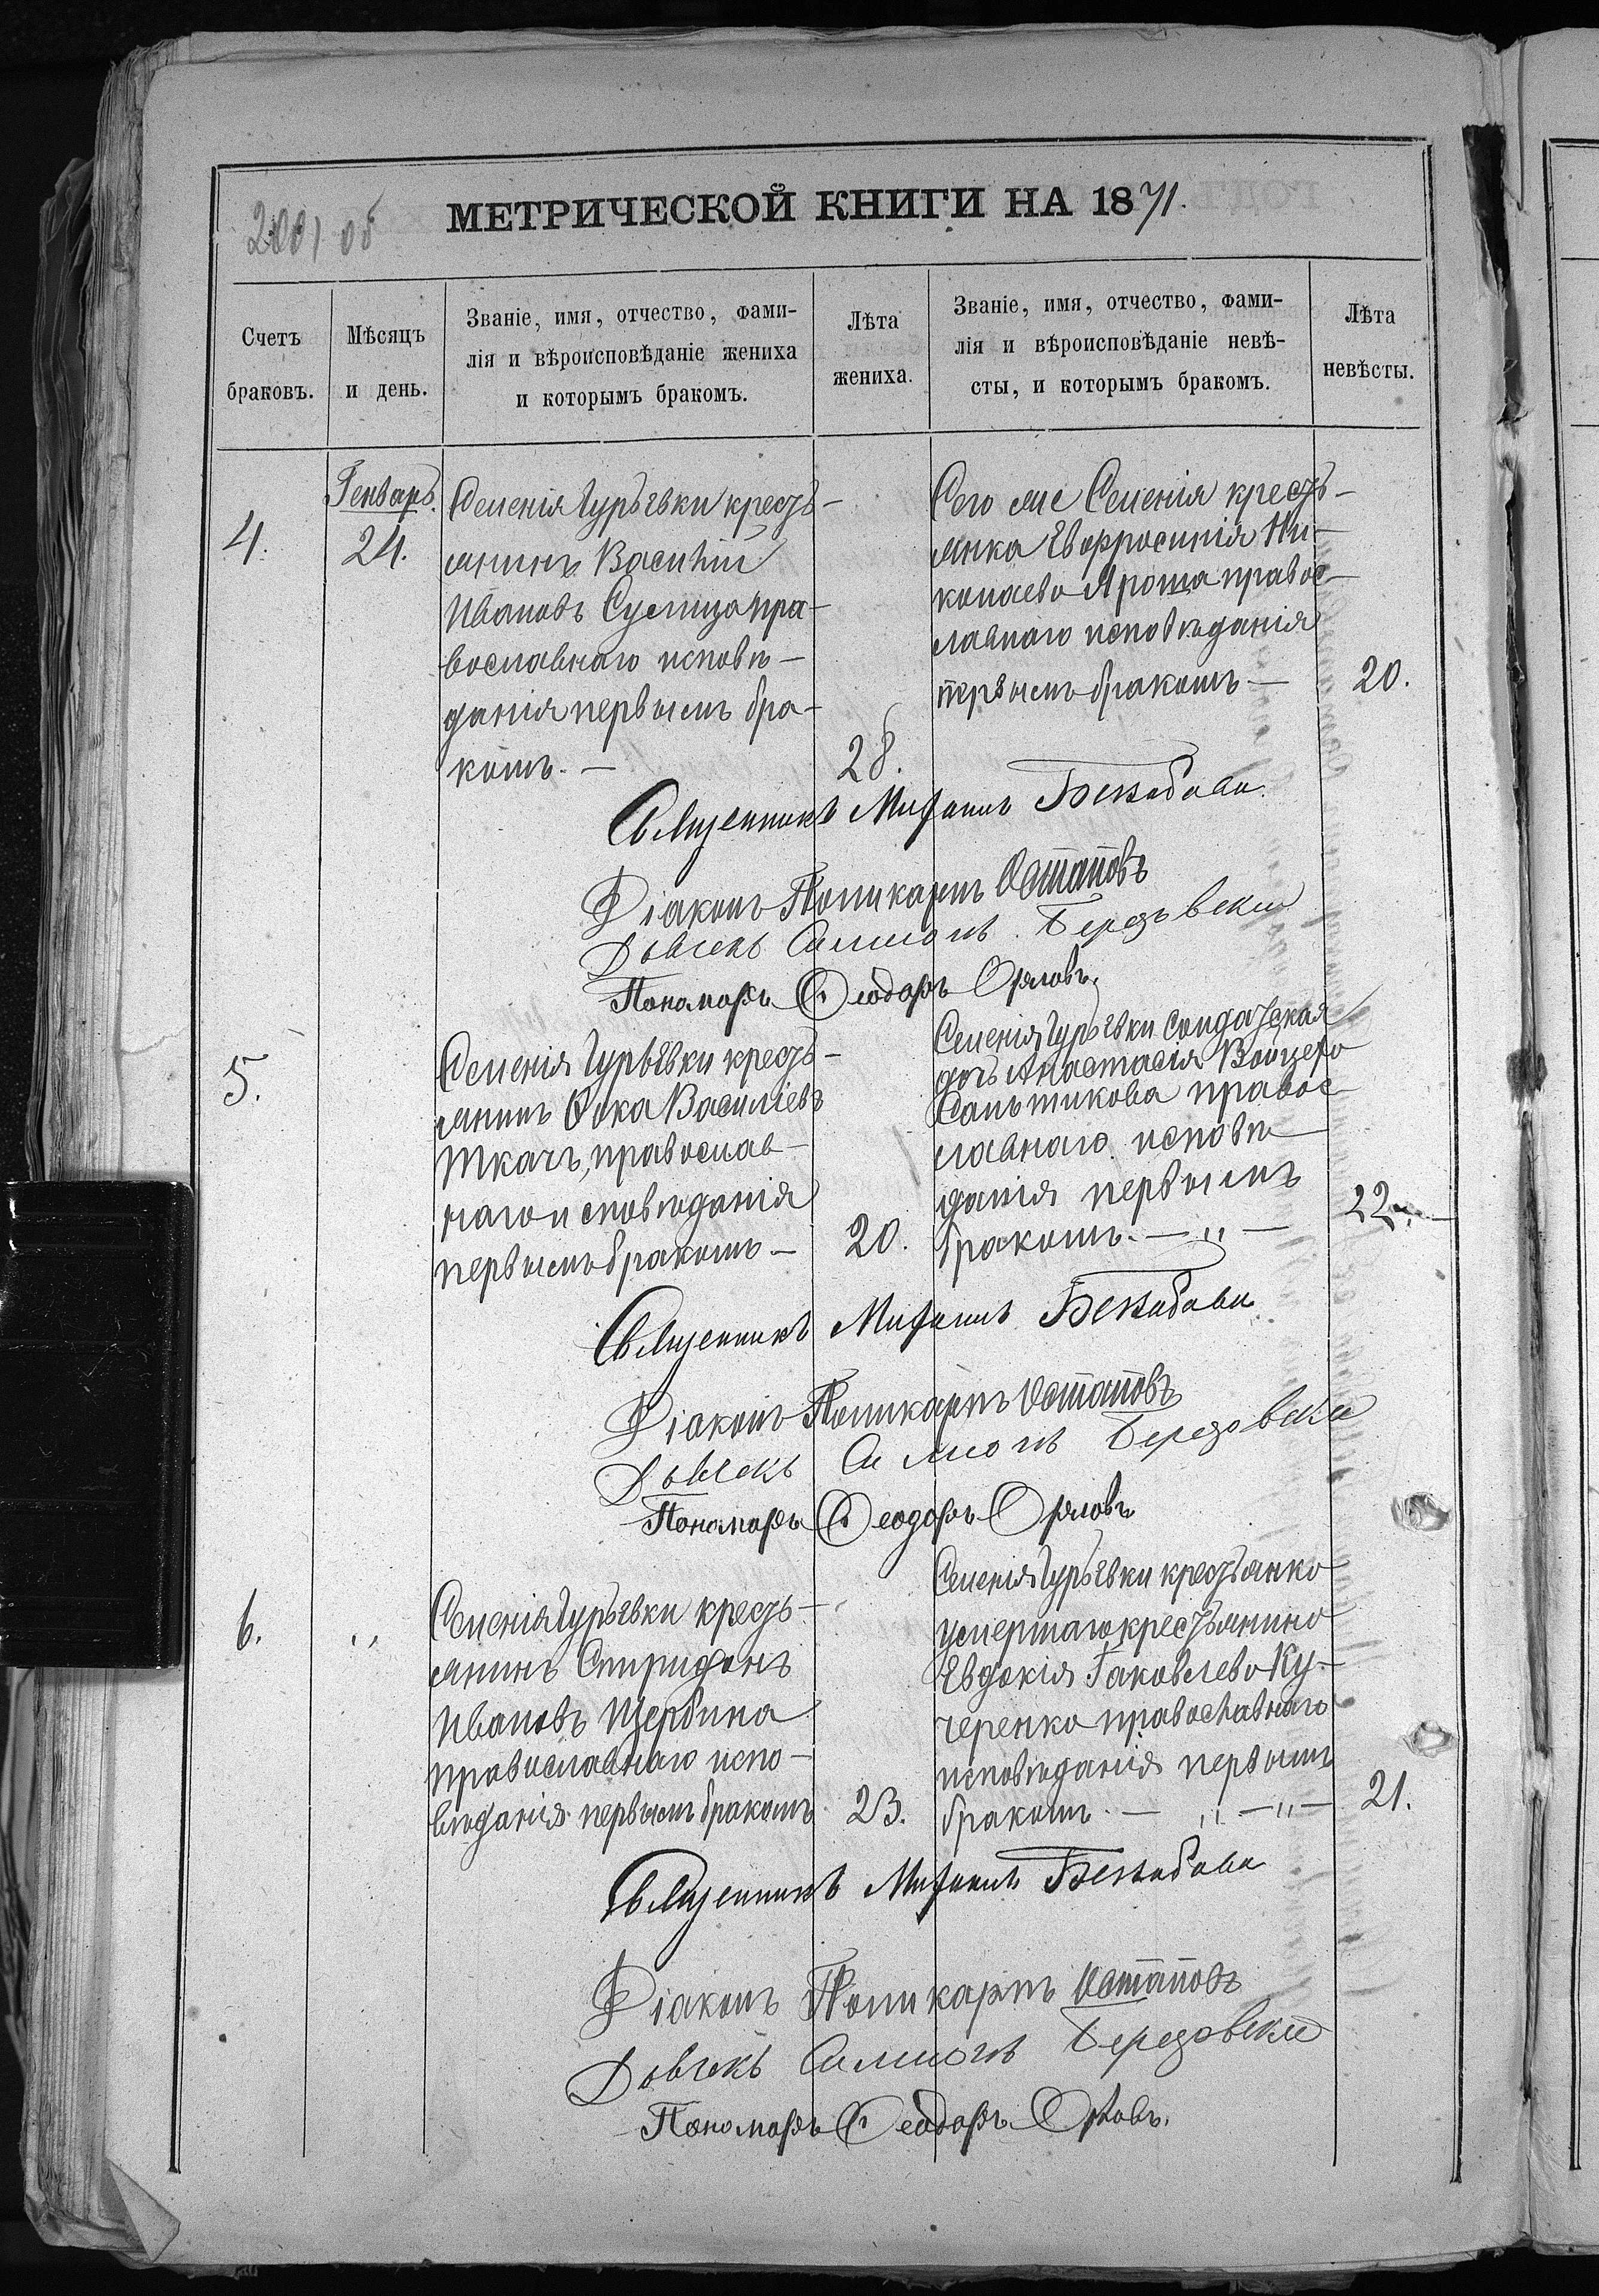 МЕТРИЧЕСКОЙ КНИГИ НА 1871.
Счетъ браковъ.
Мѣсяцъ и день.
Званіе, имя, отчество, фами-
лія и вѣроисповѣданіе жениха
и которымъ бракомъ.
Лѣта жениха.
Званіе, имя, отчество, фами-
лія и вѣроисповѣданіе невѣ-
сты, и которымъ бракомъ.
Лѣта невѣсты.
4.
Генварь.
24.
Селенія Гурьевки кресть-
янинъ Василій
Ивановъ Суслица пра-
вославнаго исповѣ-
данія первымъ бра-
комъ. —
28.
Сего же Селенія кресть-
янка Евфросинія Ни-
колаева Яроша правос-
лавнаго исповѣданія
первымъ бракомъ —
20.
Священникъ Михаилъ
Діаконъ Поликарпъ Остаповъ
Дьячекъ Симеонъ Березовскій
Пономарь Ѳеодоръ Орловъ.
5.
Селенія Гурьевки кресть-
янинъ Ѳока Васильевъ
Ткачъ, православ-
наго исповѣданія
первымъ бракомъ —
20.
Селенія Гурьевки солдатская
дочь Анастасія
Сальникова правос-
лавнаго исповѣ-
данія первымъ
бракомъ. — „ —
22.
Священникъ Михаилъ
Діаконъ Поликарпъ Остаповъ
Дьячекъ Симеонъ Березовскій
Пономарь Ѳеодоръ Орловъ
6.
„
Селенія Гурьевки кресть-
янинъ Спиридонъ
Ивановъ Щербина
православнаго испо-
вѣданія первымъ бракомъ
23.
Селенія Гурьевки крестьянка
умершаго крестьянина
Евдокія Іаковлева Ку-
черенко православнаго
исповѣданія первымъ
бракомъ. — „ — „ —
21.
Священникъ Михаилъ
Діаконъ Поликарпъ Остаповъ
Дьячекъ Симеонъ Березовскій
Пономарь Ѳеодоръ Орловъ.